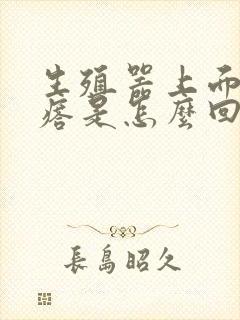 生殖器上而
痞是怎麼回
長島昭久